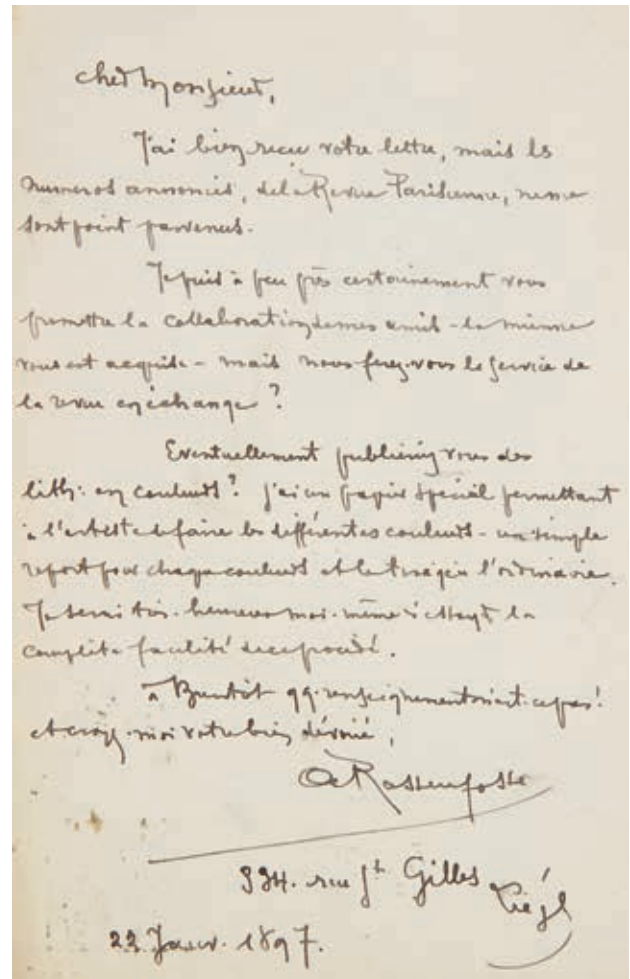 cher Monsieur,
J'ai bien reçu votre lettre, mais les
numeros annoncés, de la Revue Parisienne, ne me
sont point parvenus.
Je puis à peu près certainement vous
promettre la collaboration de mes amis - la mienne
vous est acquise - mais nous ferez-vous le service de
la revue en échange ?
Eventuellement publieriez vous des
lith: en couleurs ? j'ai un papier spécial permettant
à l'artiste de faire les différentes couleurs - un simple
report pour chaque couleurs et le tirage à l'ordinaire.
Je serai très-heureux moi-même d'essayer la
complète facilité de ce procédé.
à Bientôt qq. renseignements n'est-ce pas !
et croyez-moi votre bien dévoué,
A Rassenfosse
334. rue St Gilles Liége
22 Janv. 1897.